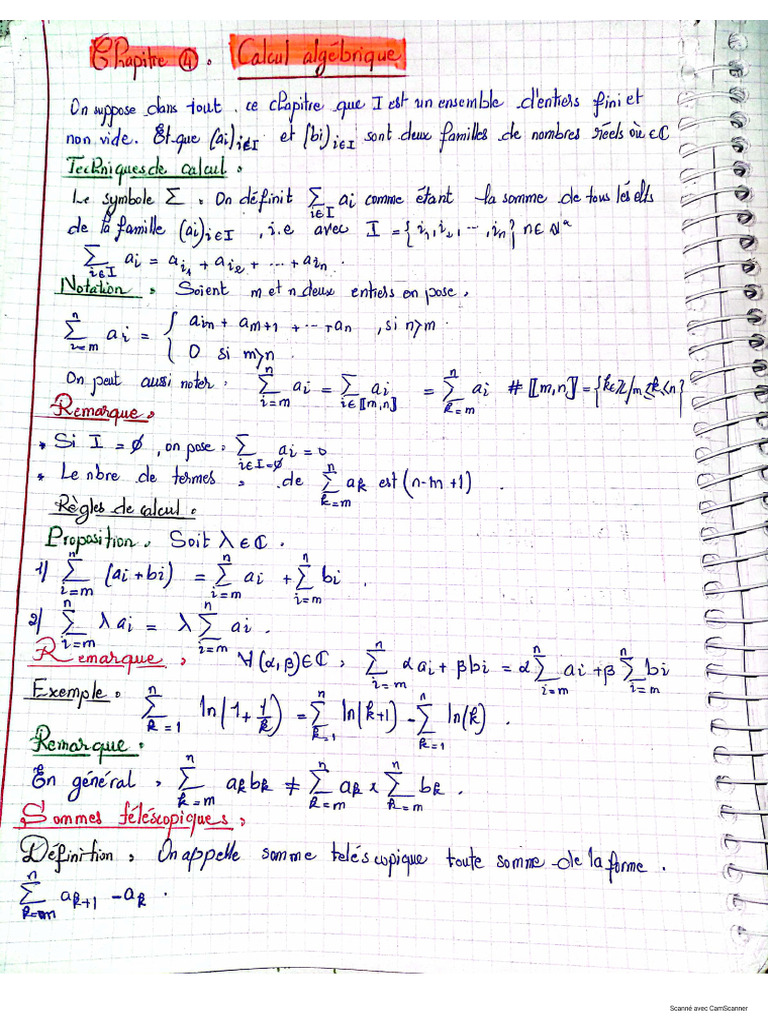 Chapitre ④ : Calcul algébrique
On suppose dans tout ce chapitre que I est un ensemble d'entiers fini et
non vide. Et que (ai)i∈I et (bi)i∈I sont deux familles de nombres réels où ∈ℂ
Techniques de calcul :
Le symbole Σ : On définit Σ_{i∈I} ai comme étant la somme de tous les elts
de la famille (ai)i∈I , i.e avec I = {i1, i2, ..., in} n∈ℕ*
Σ_{i∈I} ai = ai1 + ai2 + ... + ain.
Notation : Soient m et n deux entiers on pose,
Σ_{i=m}^{n} ai = { am + am+1 + ... + an , si n≥m.
{ 0 si m>n.
On peut aussi noter : Σ_{i=m}^{n} ai = Σ_{i∈⟦m,n⟧} ai = Σ_{k=m}^{n} ai # ⟦m,n⟧ = {k∈ℤ/m≤k≤n}
Remarque :
* Si I = ∅, on pose : Σ_{i∈I=∅} ai = 0
* Le nbre de termes de Σ_{k=m}^{n} ak est (n-m+1)
Règles de calcul :
Proposition : Soit λ∈ℂ.
1) Σ_{i=m}^{n} (ai+bi) = Σ_{i=m}^{n} ai + Σ_{i=m}^{n} bi.
2) Σ_{i=m}^{n} λai = λ Σ_{i=m}^{n} ai.
Remarque : ∀(α,β)∈ℂ, Σ_{i=m}^{n} αai + βbi = α Σ_{i=m}^{n} ai + β Σ_{i=m}^{n} bi
Exemple : Σ_{k=1}^{n} ln(1+1/k) = Σ_{k=1}^{n} ln(k+1) - Σ_{k=1}^{n} ln(k).
Remarque :
En général, Σ_{k=m}^{n} akbk ≠ Σ_{k=m}^{n} ak × Σ_{k=m}^{n} bk.
Sommes téléscopiques :
Définition : On appelle somme teléscopique toute somme de la forme.
Σ_{k=m}^{n} ak+1 - ak.
Scanné avec CamScanner